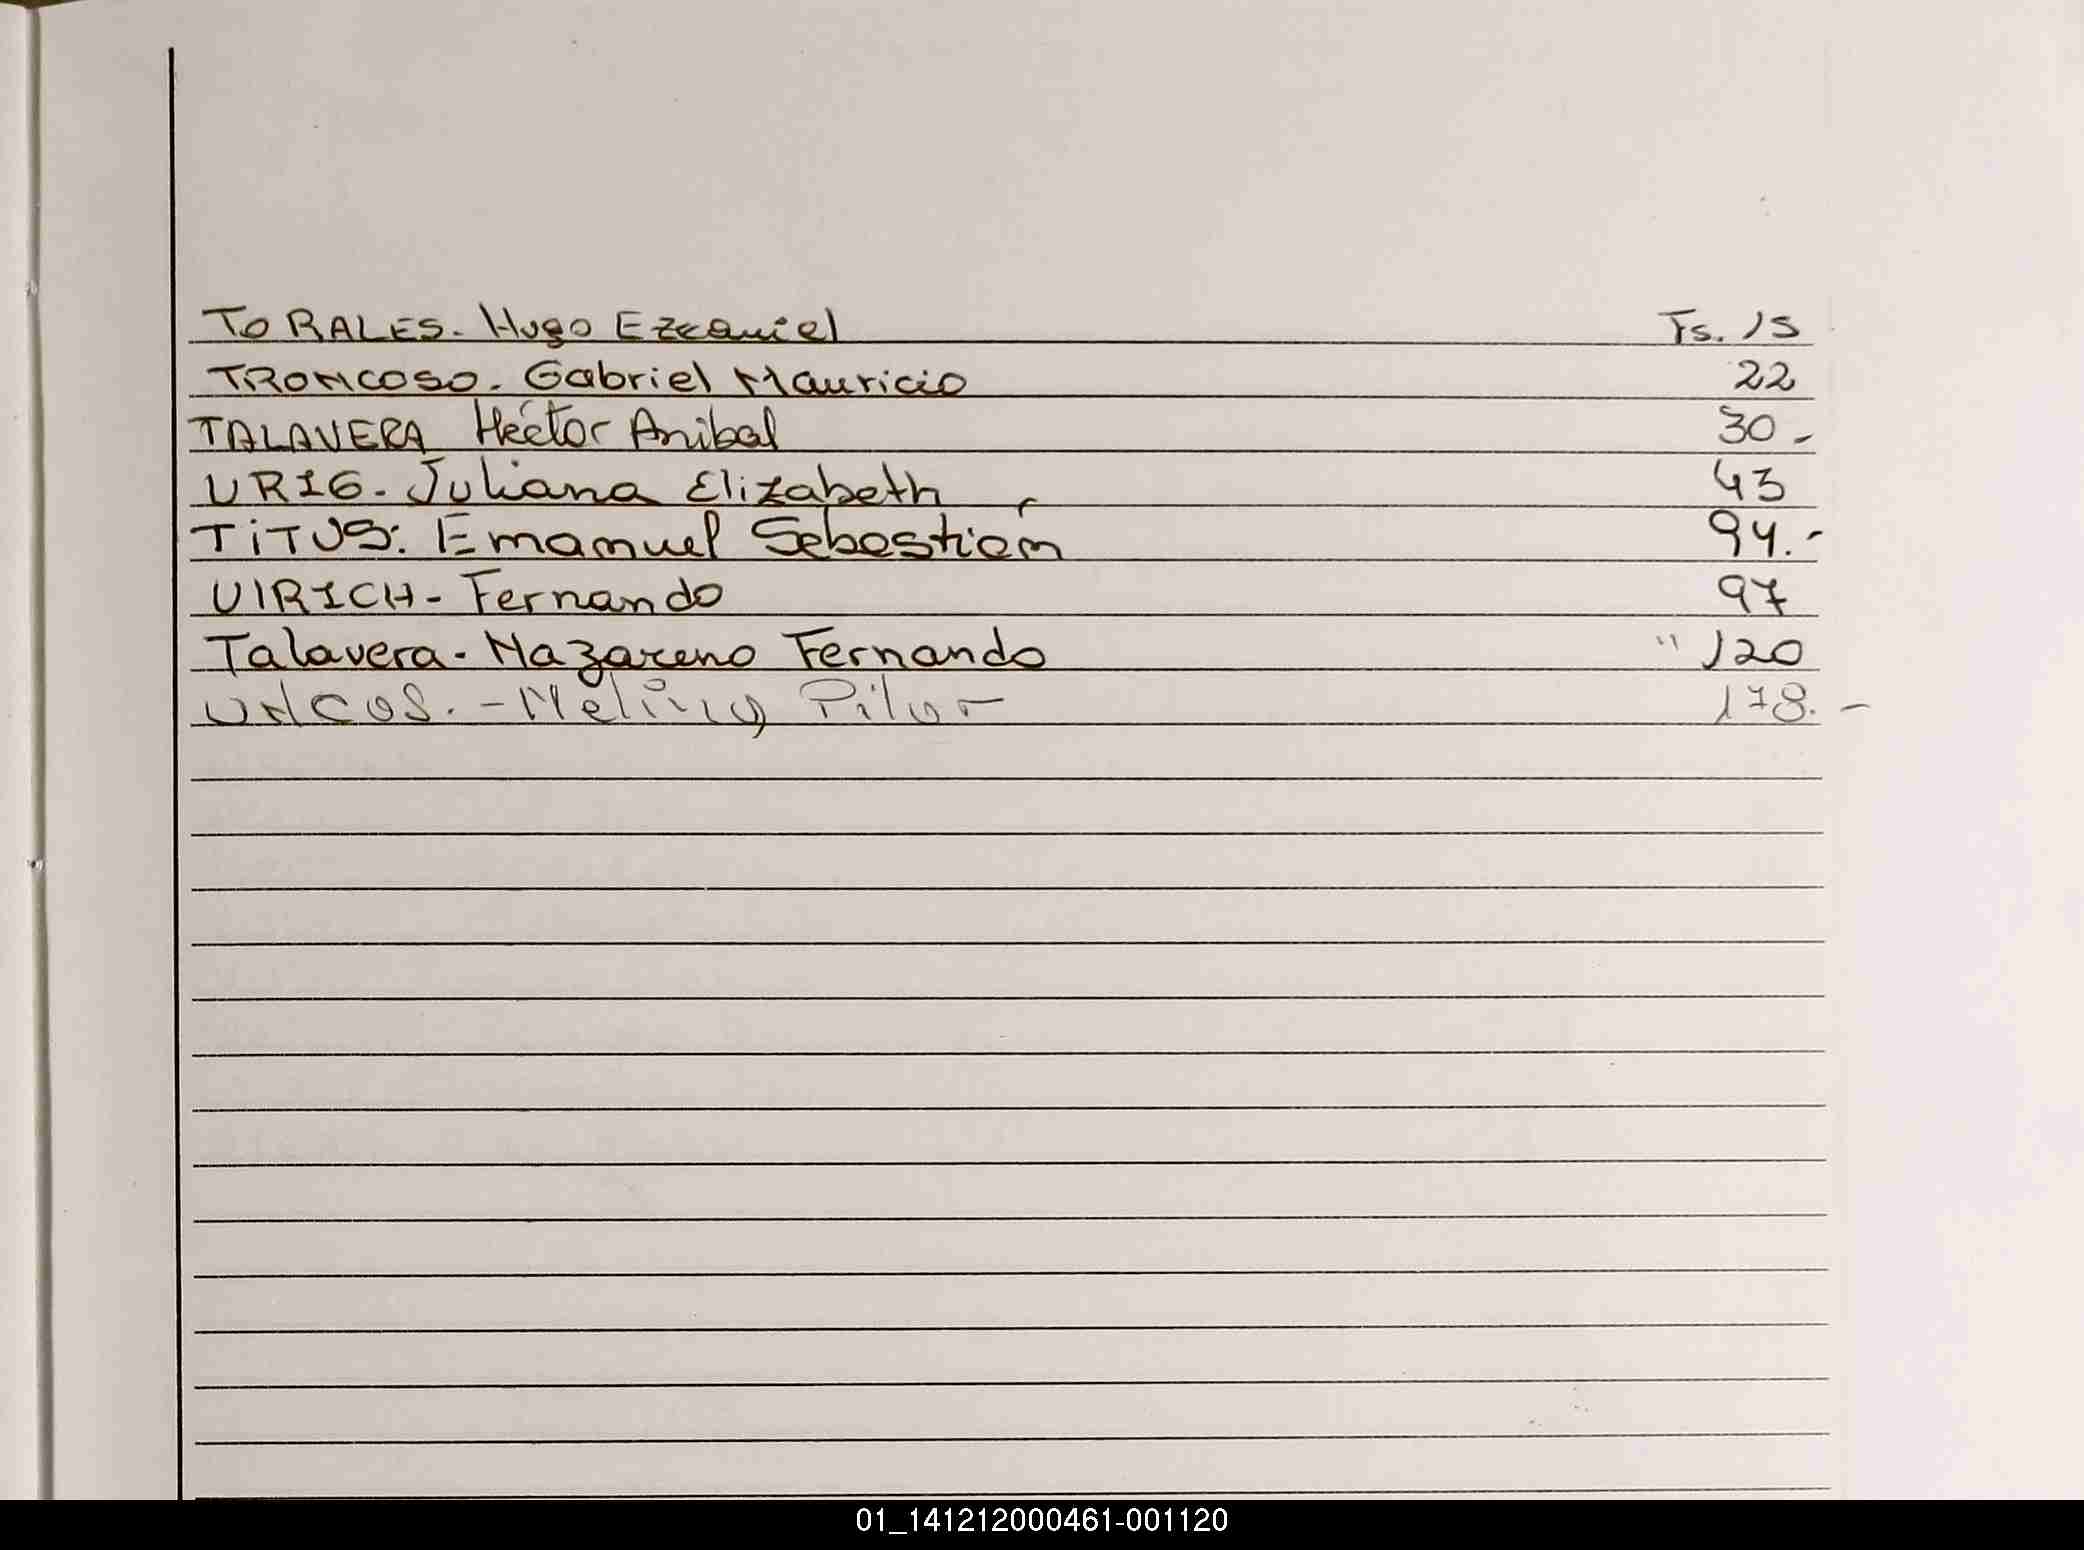 TORALES. Hugo Ezequiel Fs. 15
TRONCOSO. Gabriel Mauricio 22
TALAVERA Héctor Anibal 30 -
URIG. Juliana Elizabeth 43
TiTUS: Emanuel Sebastián 94.-
UlRICH - Fernando 97
Talavera. Nazareno Fernando " 120
Pilar 178. -
01_141212000461-001120